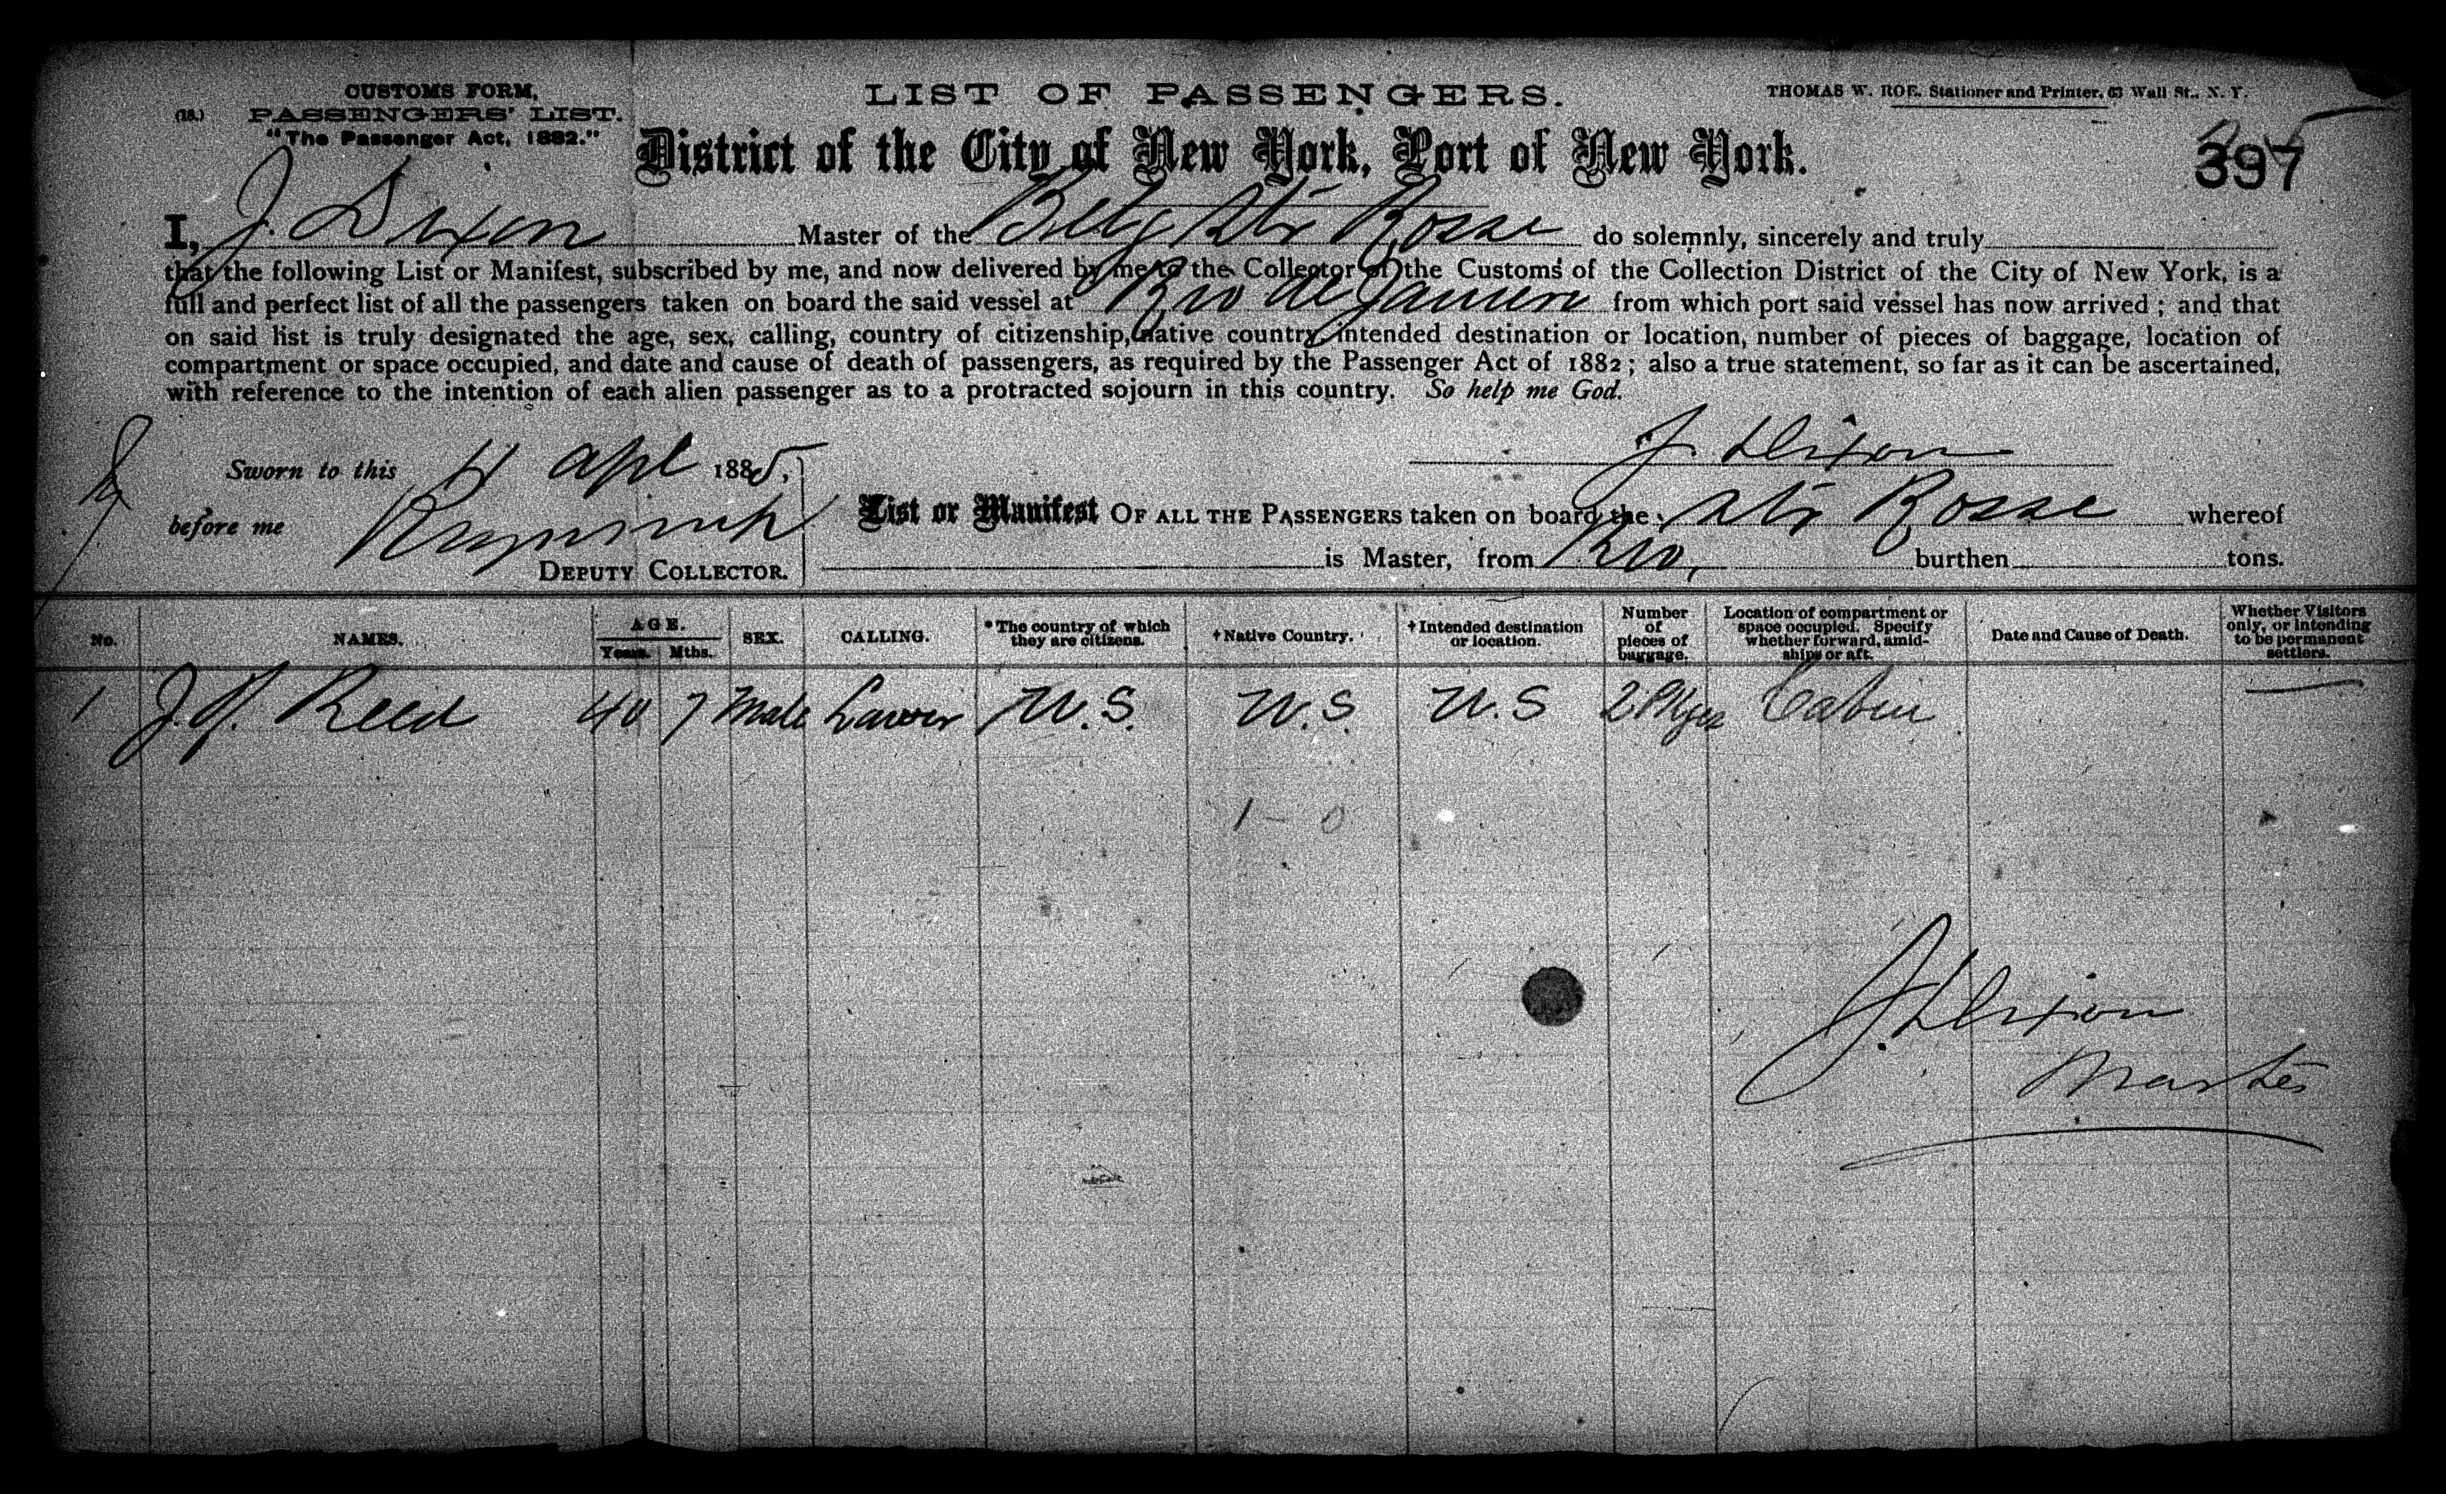 CUSTOMS FORM,
(18.) PASSENGERS' LIST.
"The Passenger Act, 1882."
LIST OF PASSENGERS.
THOMAS W. ROE, Stationer and Printer, 63 Wall St., N. Y.
District of the City of New York, Port of New York.
397
I, J. Dixon Master of the Belg Str Rosse do solemnly, sincerely and truly
that the following List or Manifest, subscribed by me, and now delivered by me to the Collector of the Customs of the Collection District of the City of New York, is a
full and perfect list of all the passengers taken on board the said vessel at Rio de Janiero from which port said vessel has now arrived ; and that
on said list is truly designated the age, sex, calling, country of citizenship, native country, intended destination or location, number of pieces of baggage, location of
compartment or space occupied, and date and cause of death of passengers, as required by the Passenger Act of 1882 ; also a true statement, so far as it can be ascertained,
with reference to the intention of each alien passenger as to a protracted sojourn in this country. So help me God.
J. Dixon
Sworn to this 11 Apl 1885,
before me
DEPUTY COLLECTOR.
List or Manifest OF ALL THE PASSENGERS taken on board the Str Rosse whereof
is Master, from Rio, burthen tons.
No. NAMES. AGE. Years. Mths. SEX. CALLING. *The country of which they are citizens. †Native Country. †Intended destination or location. Number of pieces of baggage. Location of compartment or space occupied. Specify whether forward, amidships or aft. Date and Cause of Death. Whether Visitors only, or intending to be permanent settlers.
1 Reed 40 7 Male Lawer U.S. U.S. U.S 2 Pkges Cabin
1 - 0
J. Dixon
Master